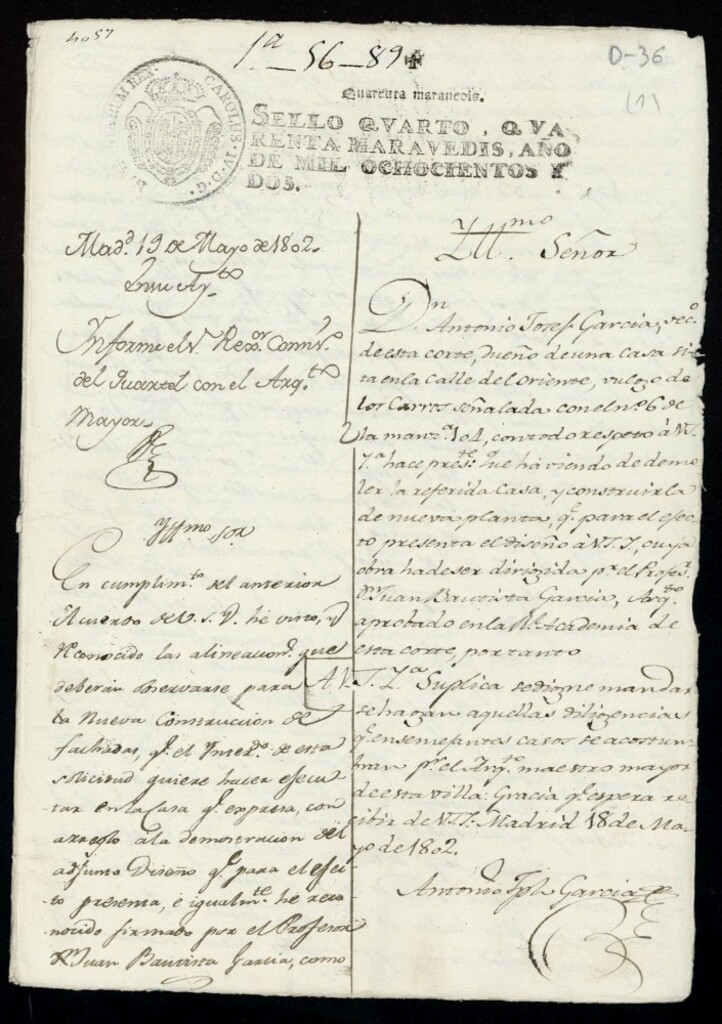 4057
1ª_56_89
D-36
(1)
Quarenta maravedis.
CAROLUS IV D. G.
SELLO QVARTO, QVA
RENTA MARAVEDIS, AÑO
DE MIL OCHOCIENTOS Y
DOS.
Mad.d 19 de Mayo de 1802.
En su Ay.to
Informe el S.r Rex.or Comis.o
del Quartel con el Arq.to
Mayor.
Yll.mo Sor
En cumplim.to del anterior
Acuerdo de V. S. Y. hé visto, y
Reconocido las alineacion.s que
deberán observarse para
la Nueva Construccion de
fachadas, q.e el Ynter.do de esta
solicitud quiere hacer ejecu
tar en la Casa q.e expresa, con
arreglo a la demostracion del
adjunto Diseño q.e para el efec
to presenta, é igualm.te hé reco
nocido firmado por el Profesor
D.n Juan Bautista Garcia, como
Yll.mo Señor
D.n Antonio Josef Garcia, vec.o
de esta corte, dueño de una casa si
ta en la Calle del Oriente, vulgo de
los Carros señalada con el n.o 6 de
la manz.a 104, con todo respeto á V.
Y.a hace pres.te que haviendo de demo
ler la referida Casa, y construirla
de nueva planta, q.e para el efec
to presenta el diseño á V.S.Y., cuya
obra ha de ser dirigida p.r el Profes.r
D.n Juan Bautista Garcia, Arq.to
aprobado en la R.l Academia de
esta corte, por tanto
A V.S.Y.a Suplica se digne mandar
se hagan aquellas diligencias
q.e en semejantes casos se acostum
bran p.r el Arq.to maestro mayor
de esta villa: Gracia q.e espera re
cibir de V.S.Y. Madrid 18 de Ma
yo de 1802.
Antonio Jph Garcia